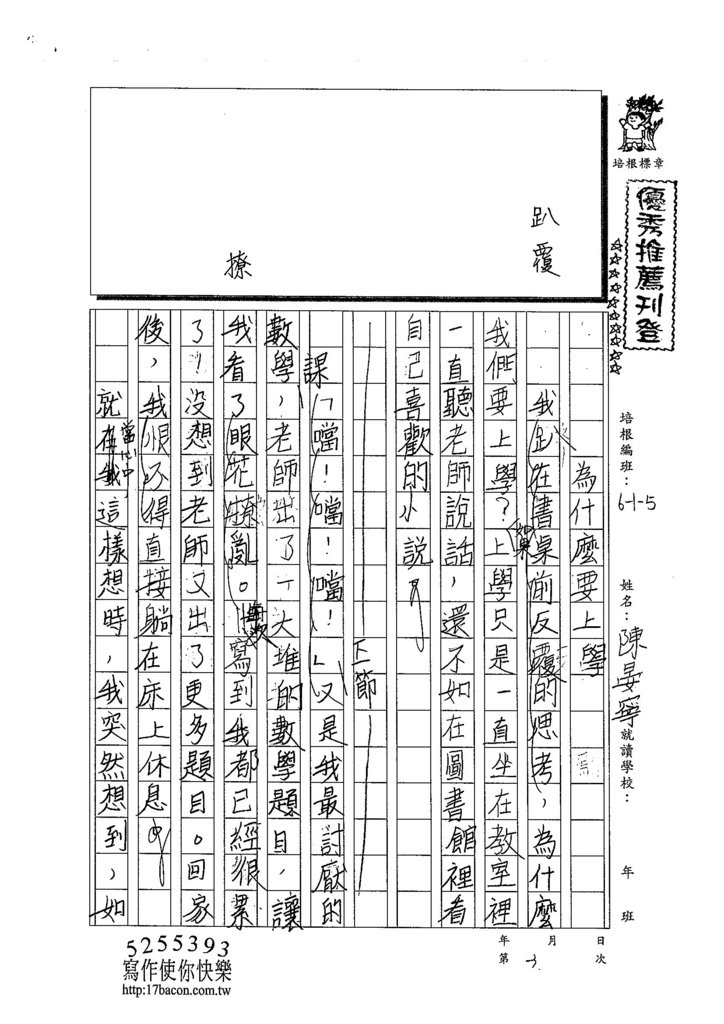 培根標章
優秀推薦刊登
☆☆☆☆☆☆☆☆☆☆
培根編班：6-1-5 姓名：陳晏寧 就讀學校： 年 班
年 月 日
第 3 次
趴覆
撩
為什麼要上學
我趴在書桌前反覆的思考，為什麼
我們要上學？如果上學只是一直坐在教室裡
一直聽老師說話，還不如在圖書館裡看
自己喜歡的小說
下一節
課「噹！噹！噹！」又是我最討厭的
數學，老師出了一大堆的數學題目，讓
我看了眼花撩亂。每次寫到我都已經很累
了！沒想到老師又出了更多題目。回家
後，我恨不得直接躺在床上休息
就在當心中這樣想時，我突然想到，如
5255393
寫作使你快樂
http:17bacon.com.tw